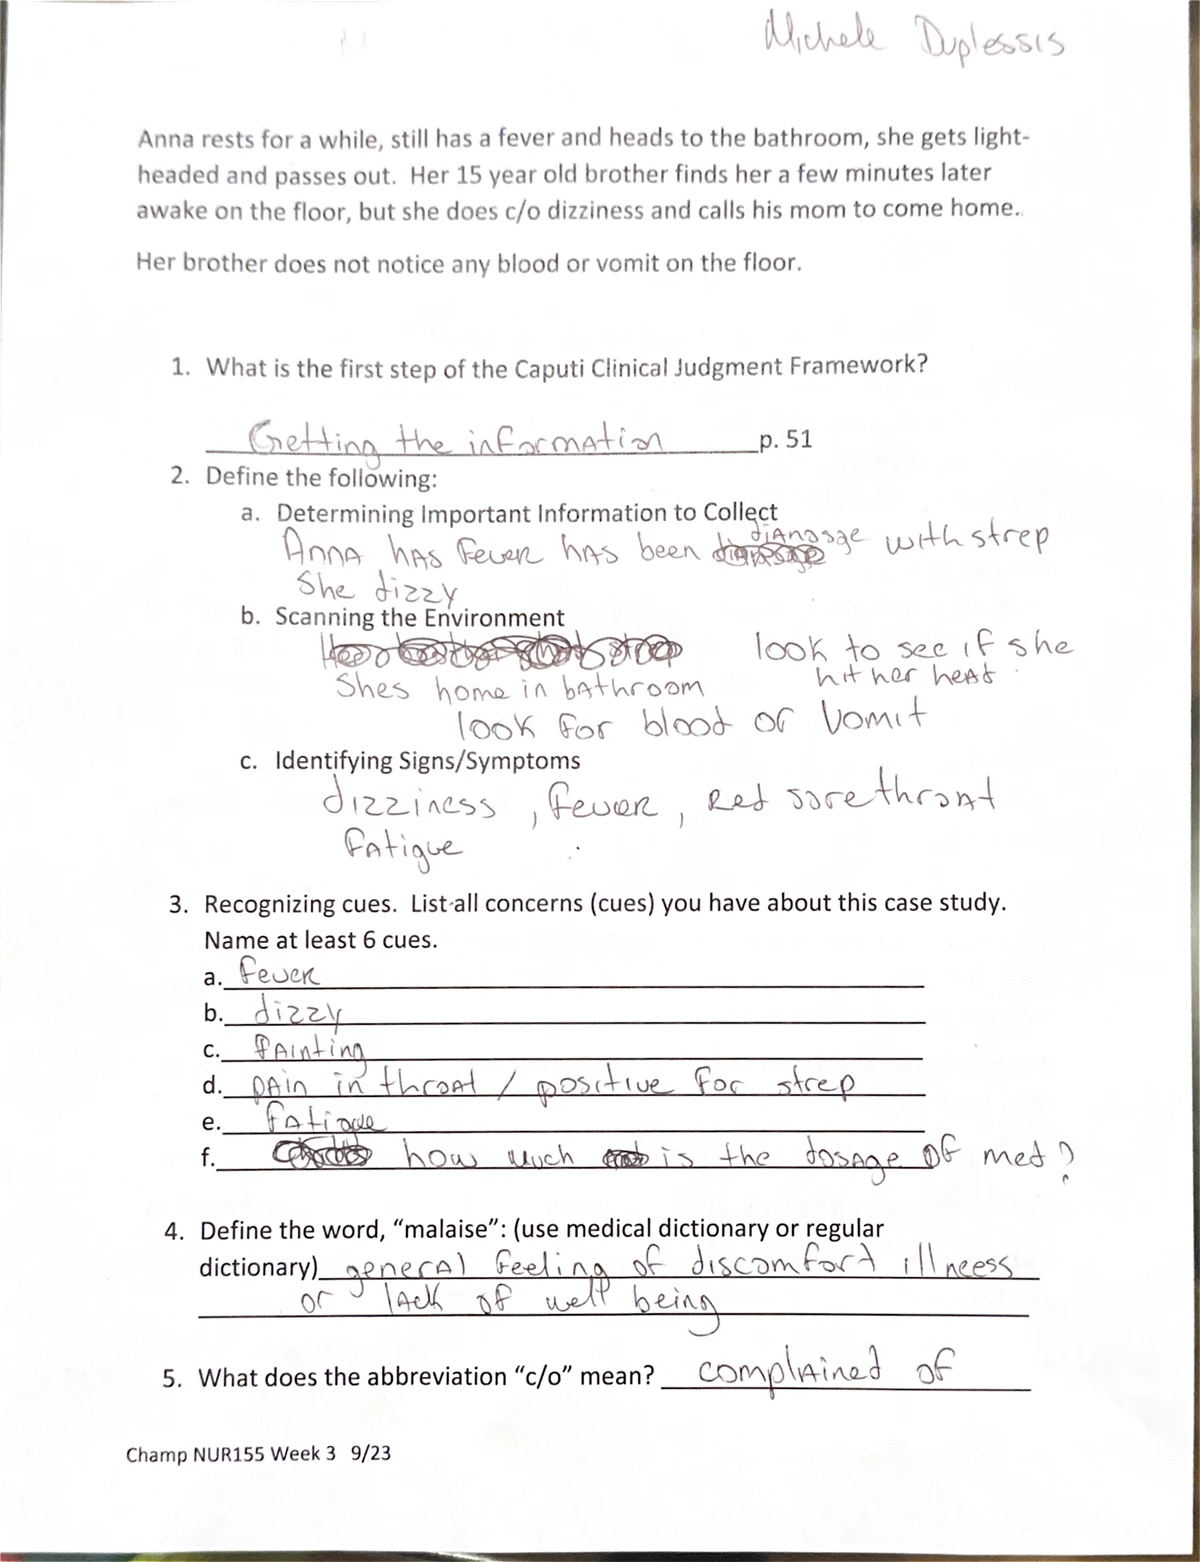 Michele Duplessis
Anna rests for a while, still has a fever and heads to the bathroom, she gets light-
headed and passes out. Her 15 year old brother finds her a few minutes later
awake on the floor, but she does c/o dizziness and calls his mom to come home.
Her brother does not notice any blood or vomit on the floor.
1. What is the first step of the Caputi Clinical Judgment Framework?
Getting the information p. 51
2. Define the following:
a. Determining Important Information to Collect
Anna has fever has been dianosge with strep
She dizzy
b. Scanning the Environment
look to see if she
hit her head
Shes home in bathroom
look for blood or vomit
c. Identifying Signs/Symptoms
dizziness, fever, Red sore throat
fatigue
3. Recognizing cues. List all concerns (cues) you have about this case study.
Name at least 6 cues.
a. fever
b. dizzy
c. fainting
d. pain in throat / positive for strep
e. fatigue
f. how much is the dosage of med?
4. Define the word, “malaise”: (use medical dictionary or regular
dictionary) general feeling of discomfort illneess
or lack of well being
5. What does the abbreviation “c/o” mean? complained of
Champ NUR155 Week 3 9/23